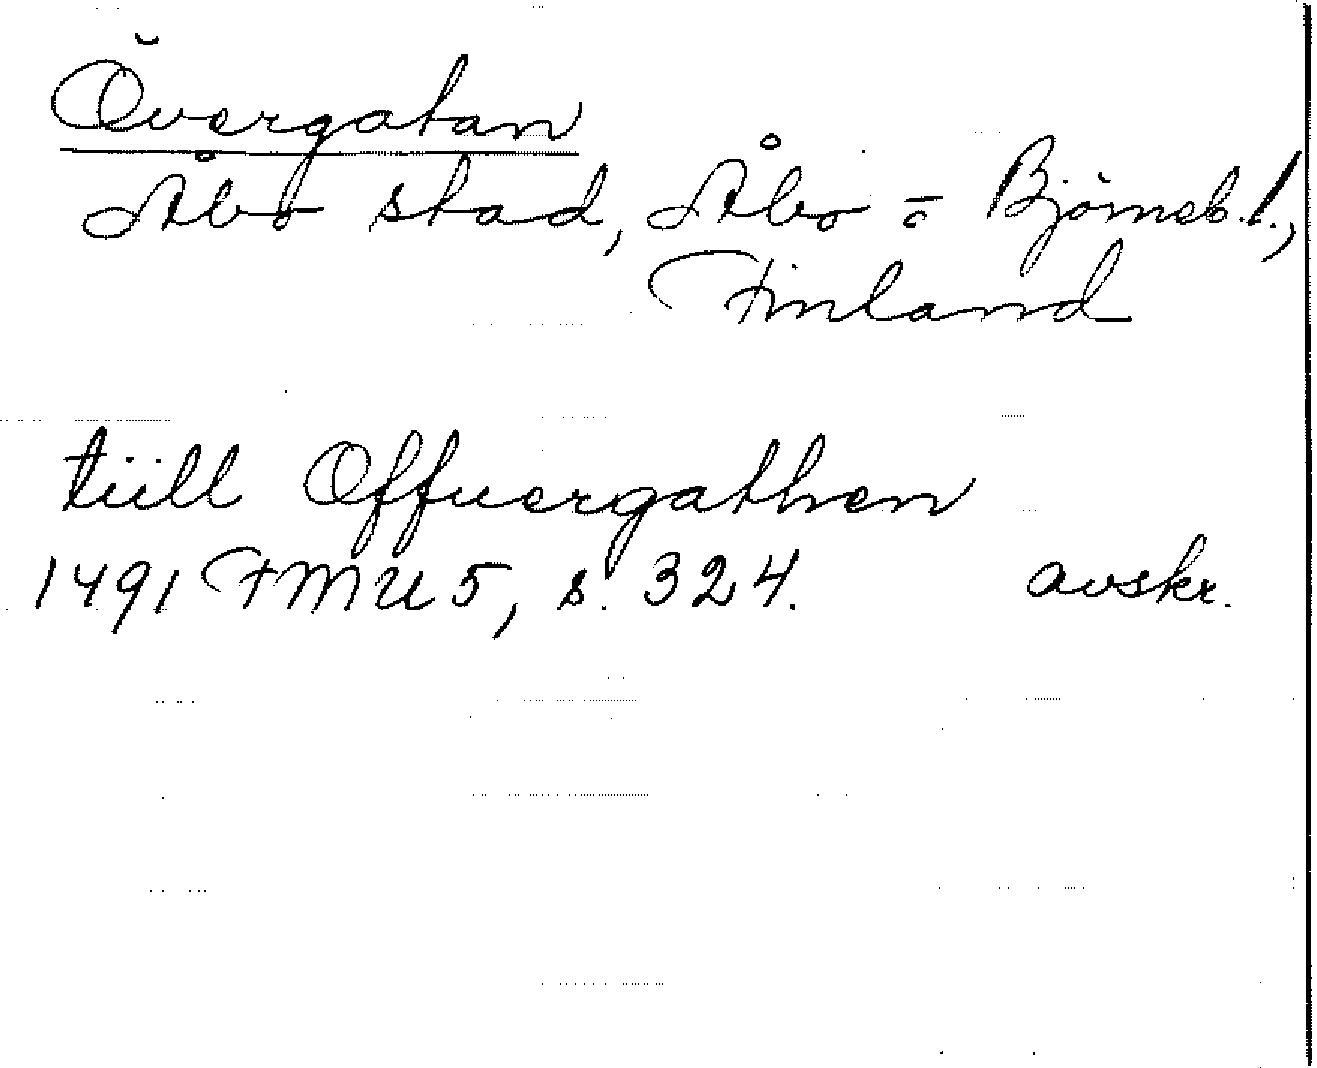 Övergatan
Åbo stad, Åbo o Björneb. l.,
Finland
tiill Offuergathen
1491 FMU 5, s. 324. avskr.